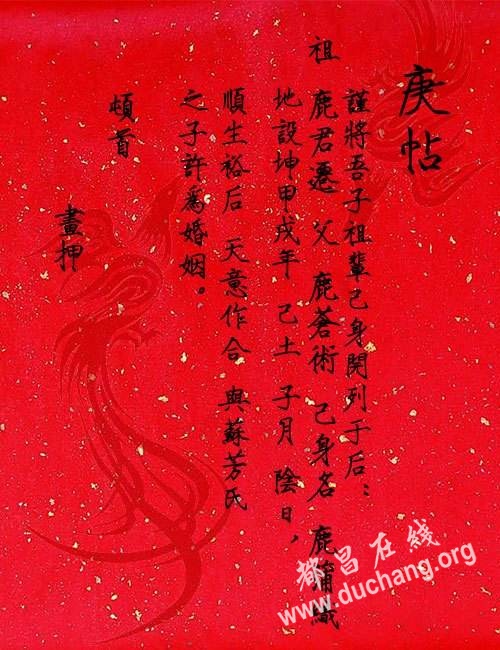 庚帖
謹將吾子祖輩己身開列于后：
祖 鹿君遷 父 鹿蒼術 己身名 鹿
地設坤甲戌年 己土 子月 陰日，
順生裕后 天意作合 與蘇芳氏
之子許爲婚姻。
頓首
畫押
都昌在线
www.duchang.org